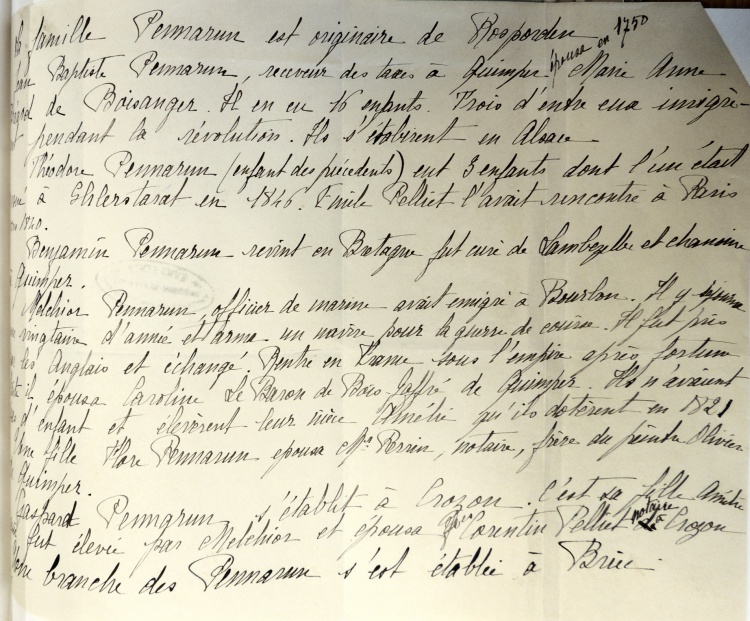 la famille Pennarun est originaire de Rosporden
Baptiste Pennarun, receveur des taxes à Quimper épousa en 1750 Marie Anne
de Boisanger. Il en eu 16 enfants. Trois d'entre eux imigrè-
pendant la révolution. Ils s'établirent en Alsace
Théodore Pennarun (enfant des précédents) eut 3 enfants dont l'un était
à en 1846. Emile Pelliet l'avait rencontré à Paris
1840.
Benjamin Pennarun revint en Bretagne fut curé de Lambezelle et chanoine
Quimper.
Melchior Pennarun, officier de marine avait emigré à Bourbon. Il y séjourna
vingtaine d'année et arma un navire pour la guerre de course. Il fut pris
les Anglais et échangé. Rentré en France sous l'empire après fortune
il épousa Caroline Le Baron de Bois Jaffré de Quimper. Ils n'avaient
d'enfant et élevèrent leur nièce Amélie qu'ils dotèrent en 1821
Une fille Flore Pennarun epousa Perrin, notaire, frère du peintre Olivier
Quimper.
Gaspard Pennarun s'établit à Crozon. C'est sa fille Amélie
fut élevée par Melchior et épousa Corentin Pelliet notaire à Crozon
branche des Pennarun s'est établie à Briec